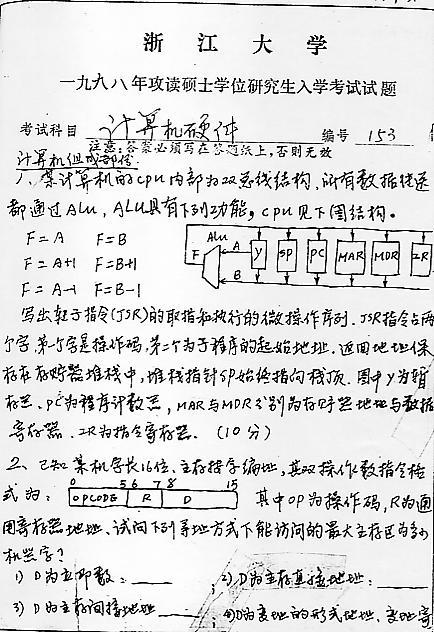 浙江大学
一九九八年攻读硕士学位研究生入学考试试题
考试科目 计算机硬件 编号 153
注意:答案必须写在答题纸上,否则无效
计算机组成部份
1、某计算机的CPU内部为双总线结构,所有数据传送
都通过ALU,ALU具有下列功能,CPU见下图结构。
F=A F=B
F=A+1 F=B+1
F=A-1 F=B-1
ALU F A B Y SP PC MAR MDR IR
写出转子指令(JSR)的取指和执行的微操作序列.JSR指令占两
个字,第一个字是操作码,第二个为子程序的起始地址.返回地址保
存在存贮器堆栈中,堆栈指针SP始终指向栈顶.图中Y为暂
存器、PC为程序计数器,MAR与MDR分别为存贮器地址与数据
寄存器.IR为指令寄存器.(10分)
2、已知某机字长16位、主存按字编址,其双操作数指令格
式为:
0 5 6 7 8 15
OPCODE R D
其中OP为操作码,R为通
用寄存器地址、试问下列寻址方式下能访问的最大主存区为多少
机器字?
1) D为立即数: 2) D为主存直接地址:
3) D为主存间接地址 4) D为变址的形式地址、变址寄